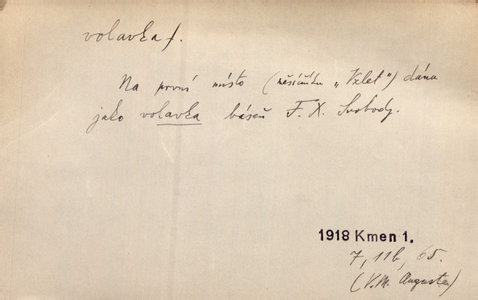 volavka f.
Na první místo (měsíčníku „Vzlet") dána
jako volavka báseň F. X. Svobody.
1918 Kmen 1.
7, 11b, 65.
(V.M. Augusta)